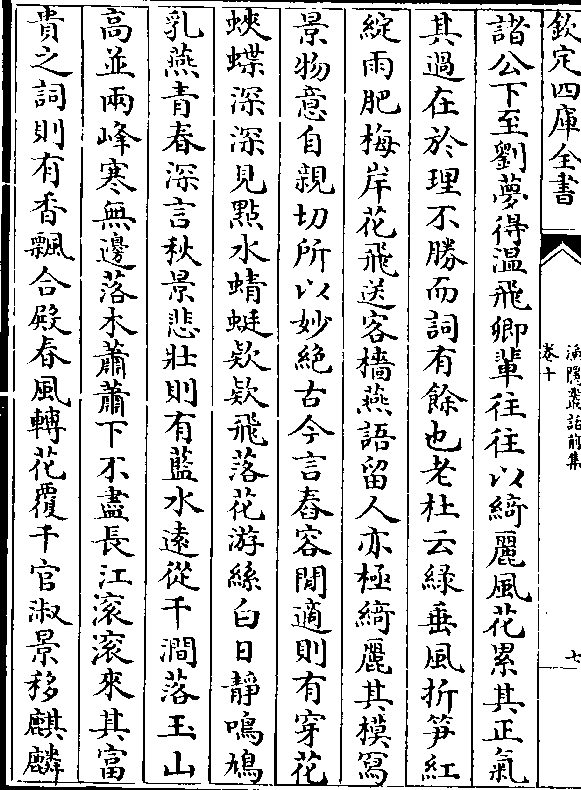 欽定四庫全書
漁隱叢話前集
卷十
七
諸公下至劉夢得溫飛卿輩往往以綺麗風花累其正氣
其過在於理不勝而詞有餘也老杜云綠垂風折笋紅
綻雨肥梅岸花飛送客檣燕語留人亦極綺麗其模寫
景物意自親切所以妙絕古今言春容閒適則有穿花
蛺蝶深深見點水蜻蜓欵欵飛落花游絲白日靜鳴鳩
乳燕青春深言秋景悲壯則有藍水遠從千澗落玉山
高並兩峰寒無邊落木蕭蕭下不盡長江滚滚來其富
貴之詞則有香飄合殿春風轉花覆千官淑景移麒麟